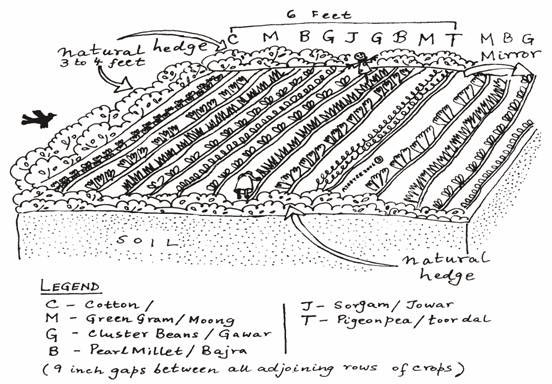 6 Feet
C M B G J G B M T M B G
Mirror
natural hedge
3 to 4 feet
SOIL
natural
hedge
LEGEND
C - Cotton/
M - Green Gram/Moong
G - Cluster Beans/Gawar
B - Pearl Millet/Bajra
J - Sorgam/Jowar
T - Pigeonpea/toordal
(9 inch gaps between all adjoining rows of crops)